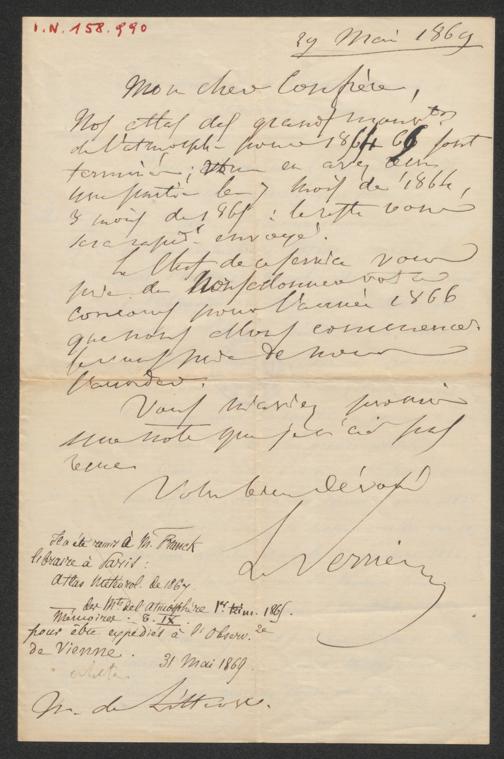 I.N. 158.990
29 Mai 1869
Mon cher Confrère,
Nos atlas des grands mouvts
de l'atmosphe pour 1864 65 sont
terminés; Vous en avez reçu
une partie les 7 mois de 1864,
3 mois de 1865: le reste vous
sera rapidt envoyé.
Le Chef de ce service vous
prie de nous donner votre
concours pour l'année 1866
que nous allons commencer
je vous prie de nous
l'accorder.
Vous m'aviez promis
une note que je n'ai pas
reçue.
Votre bien dévoué
Le Verrier
Il a été remis à Mr. Franck
libraire à Paris:
Atlas météorol. de 1867
des Mts de l'atmosphère 1er 1865.
Mémoires - T. IX.
pour être expédiés à l'Observ.
de Vienne.
31 Mai 1869.
M. de Littrow.